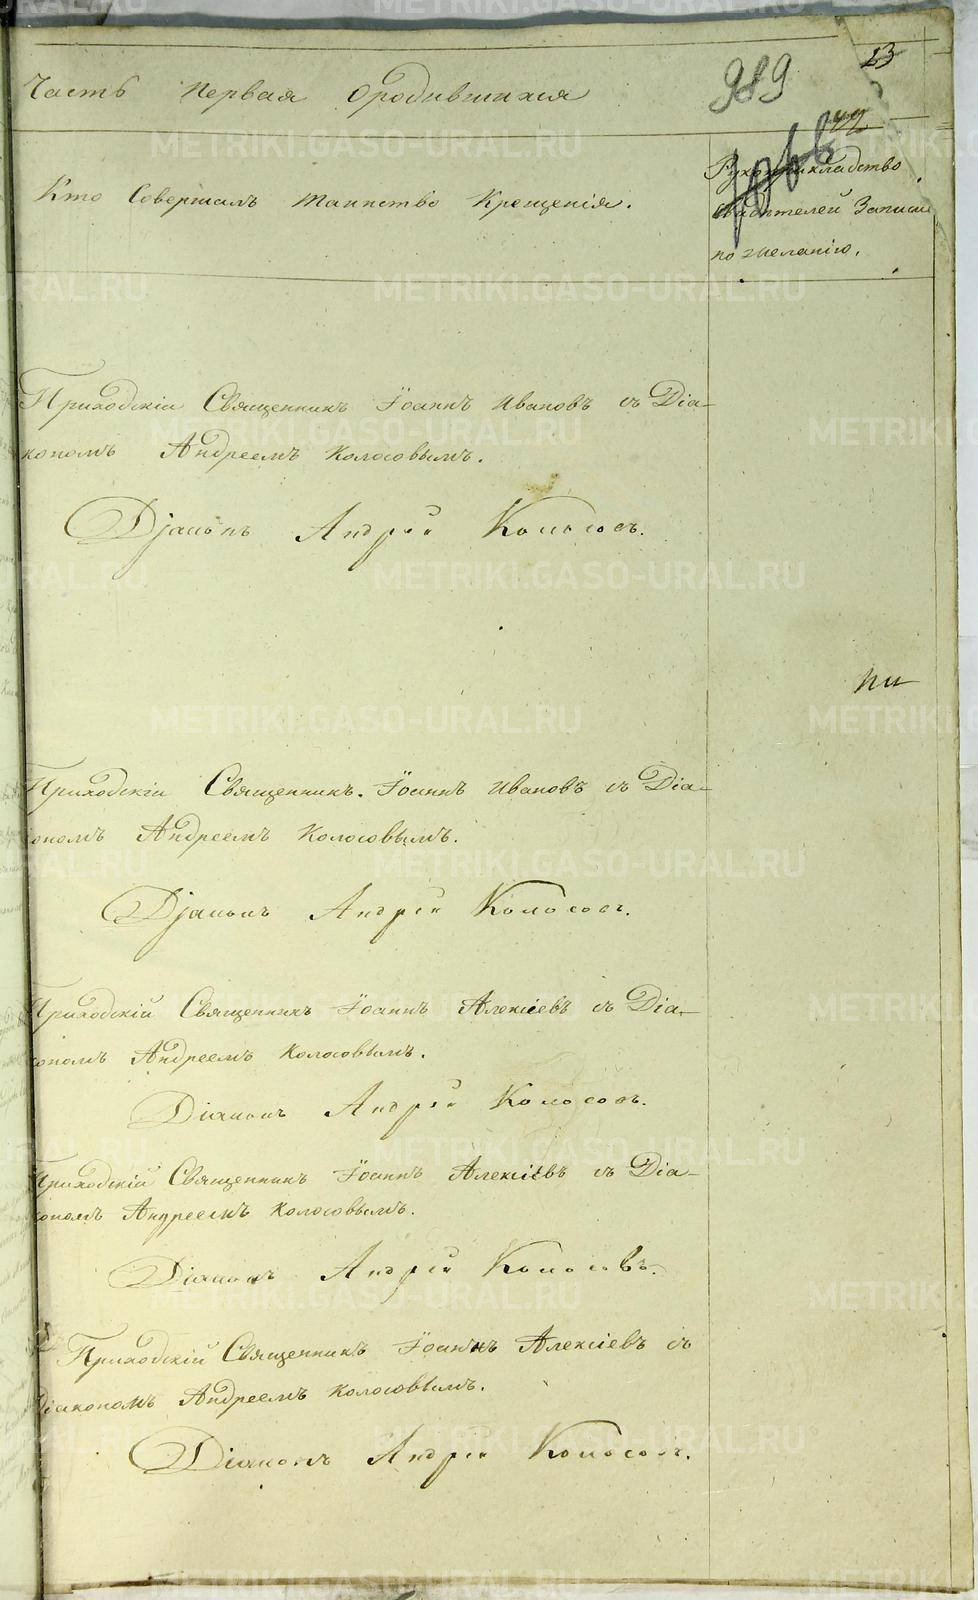 Часть Первая О родившихся
989
23
Кто Совершалъ таинство Крещенія.
Рукоприкладство
свидѣтелей Записи
по желанію.
Приходскій Священникъ Іоаннъ Ивановъ съ Діа-
кономъ Андреемъ Колосовымъ.
Діаконъ Андрей Колосовъ.
Приходскій Священникъ. Іоаннъ Ивановъ съ Діа-
кономъ Андреемъ Колосовымъ.
Діаконъ Андрей Колосовъ.
Приходскій Священникъ Іоаннъ Алексіевъ съ Діа-
кономъ Андреемъ Колосовымъ.
Діаконъ Андрей Колосовъ.
Приходскій Священникъ Іоаннъ Алексіевъ съ Діа-
кономъ Андреемъ Колосовымъ.
Діаконъ Андрей Колосовъ.
Приходскій Священникъ Іоаннъ Алексіевъ съ
Діакономъ Андреемъ Колосовымъ.
Діаконъ Андрей Колосовъ.
METRIKI.GASO-URAL.RU